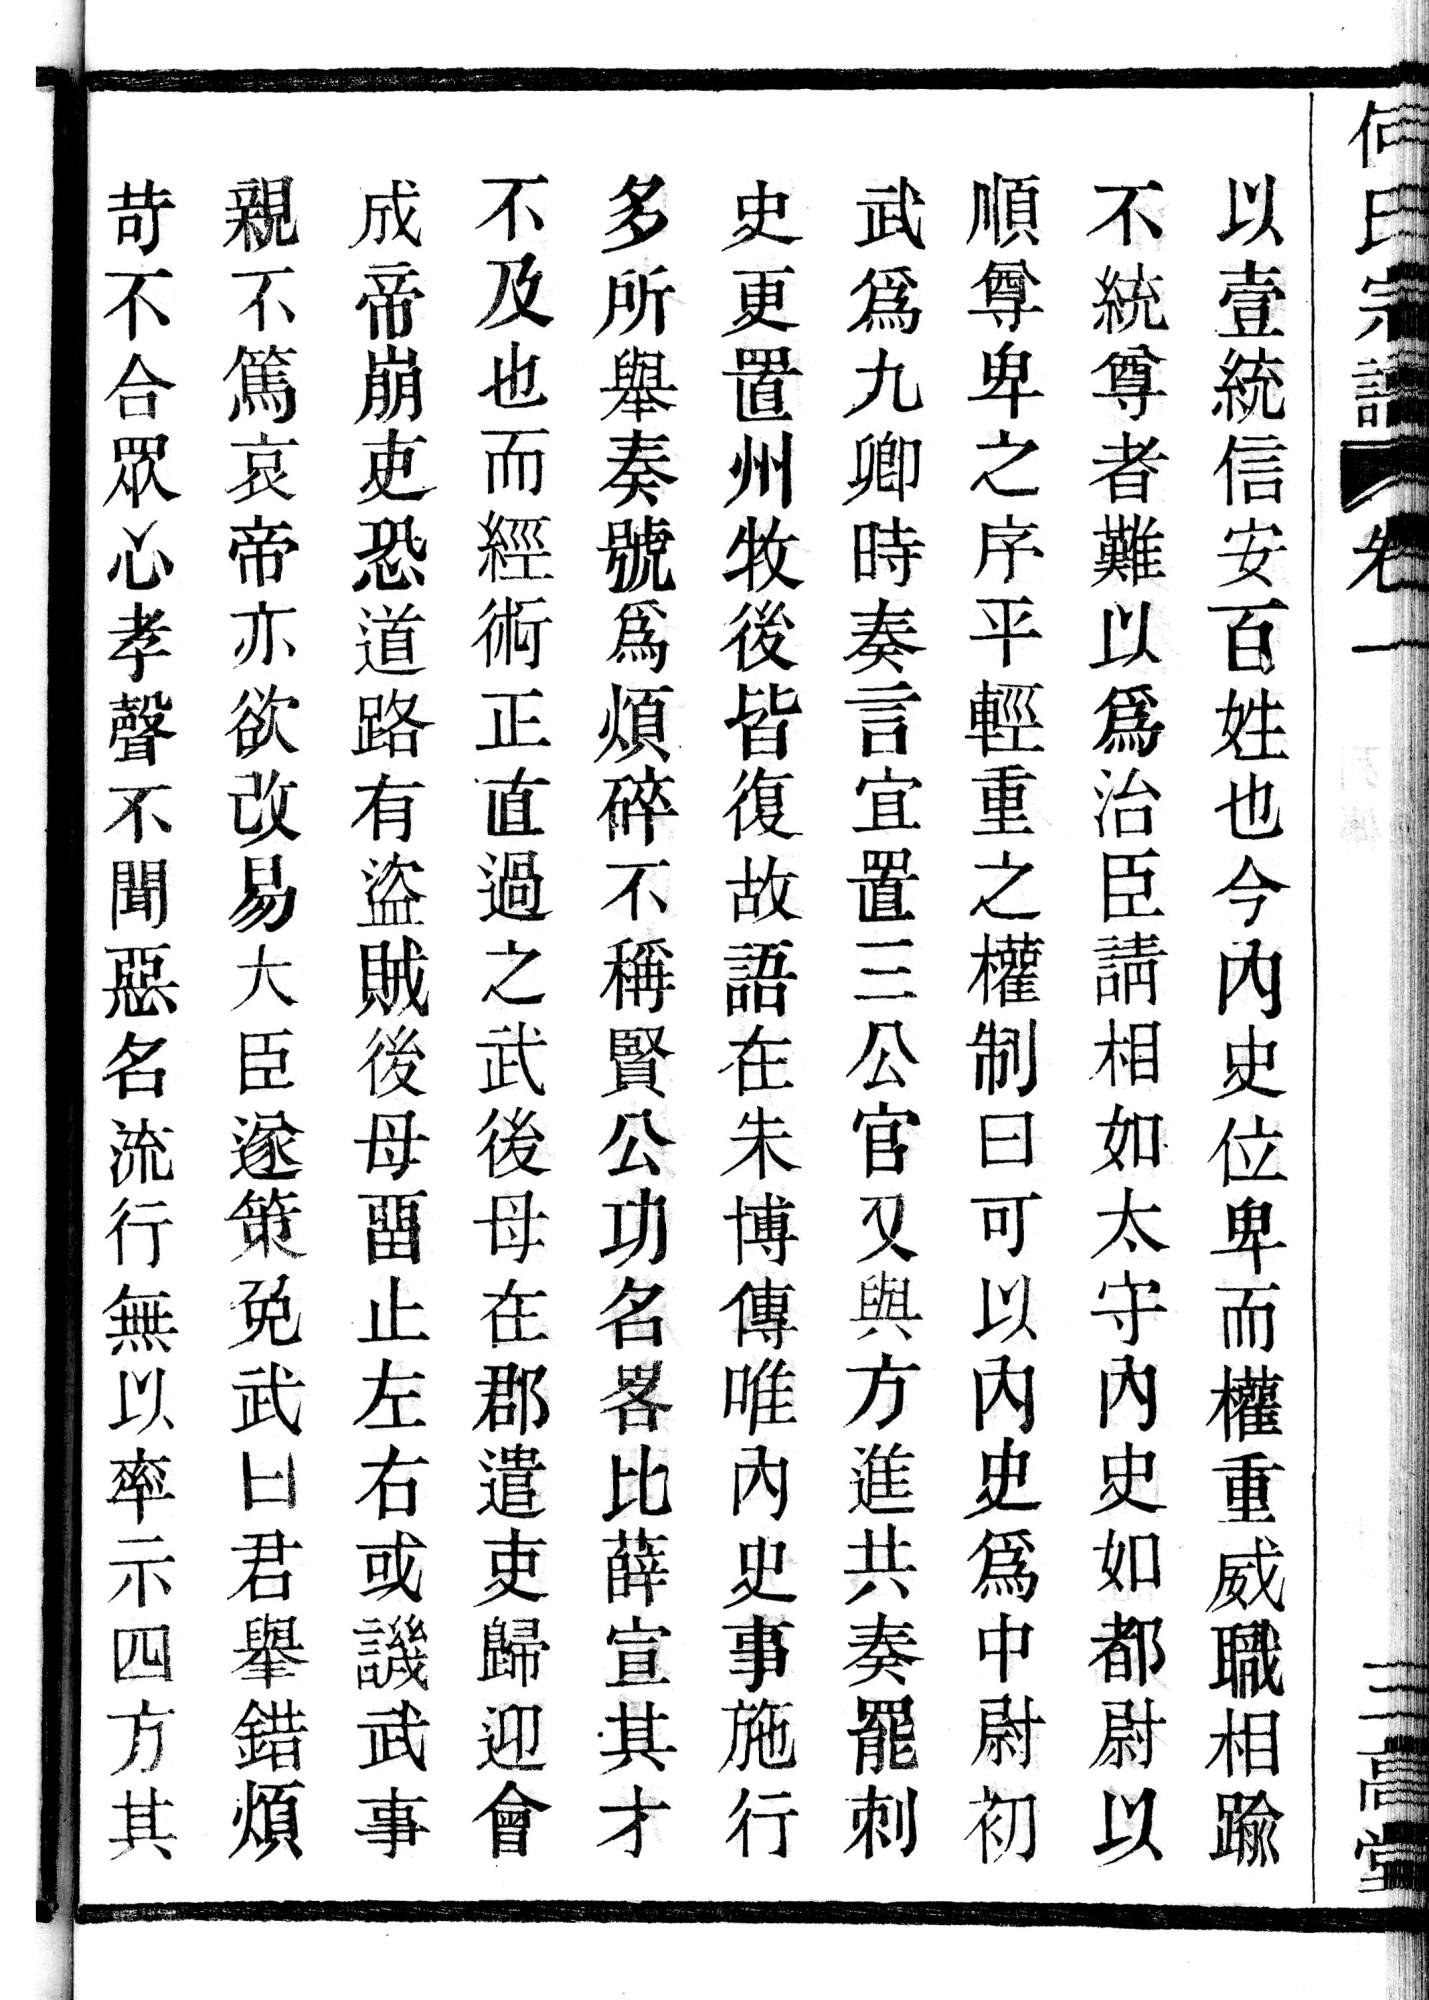 何氏宗譜 卷一 三高堂
以壹統信安百姓也今內史位卑而權重威職相踰
不統尊者難以爲治臣請相如太守內史如都尉以
順尊卑之序平輕重之權制曰可以內史爲中尉初
武爲九卿時奏言宜置三公官又與方進共奏罷刺
史更置州牧後皆復故語在朱博傳唯內史事施行
多所舉奏號爲煩碎不稱賢公功名畧比薛宣其才
不及也而經術正直過之武後母在郡遣吏歸迎會
成帝崩吏恐道路有盜賊後母畱止左右或譏武事
親不篤哀帝亦欲改易大臣遂策免武曰君舉錯煩
苛不合眾心孝聲不聞惡名流行無以率示四方其